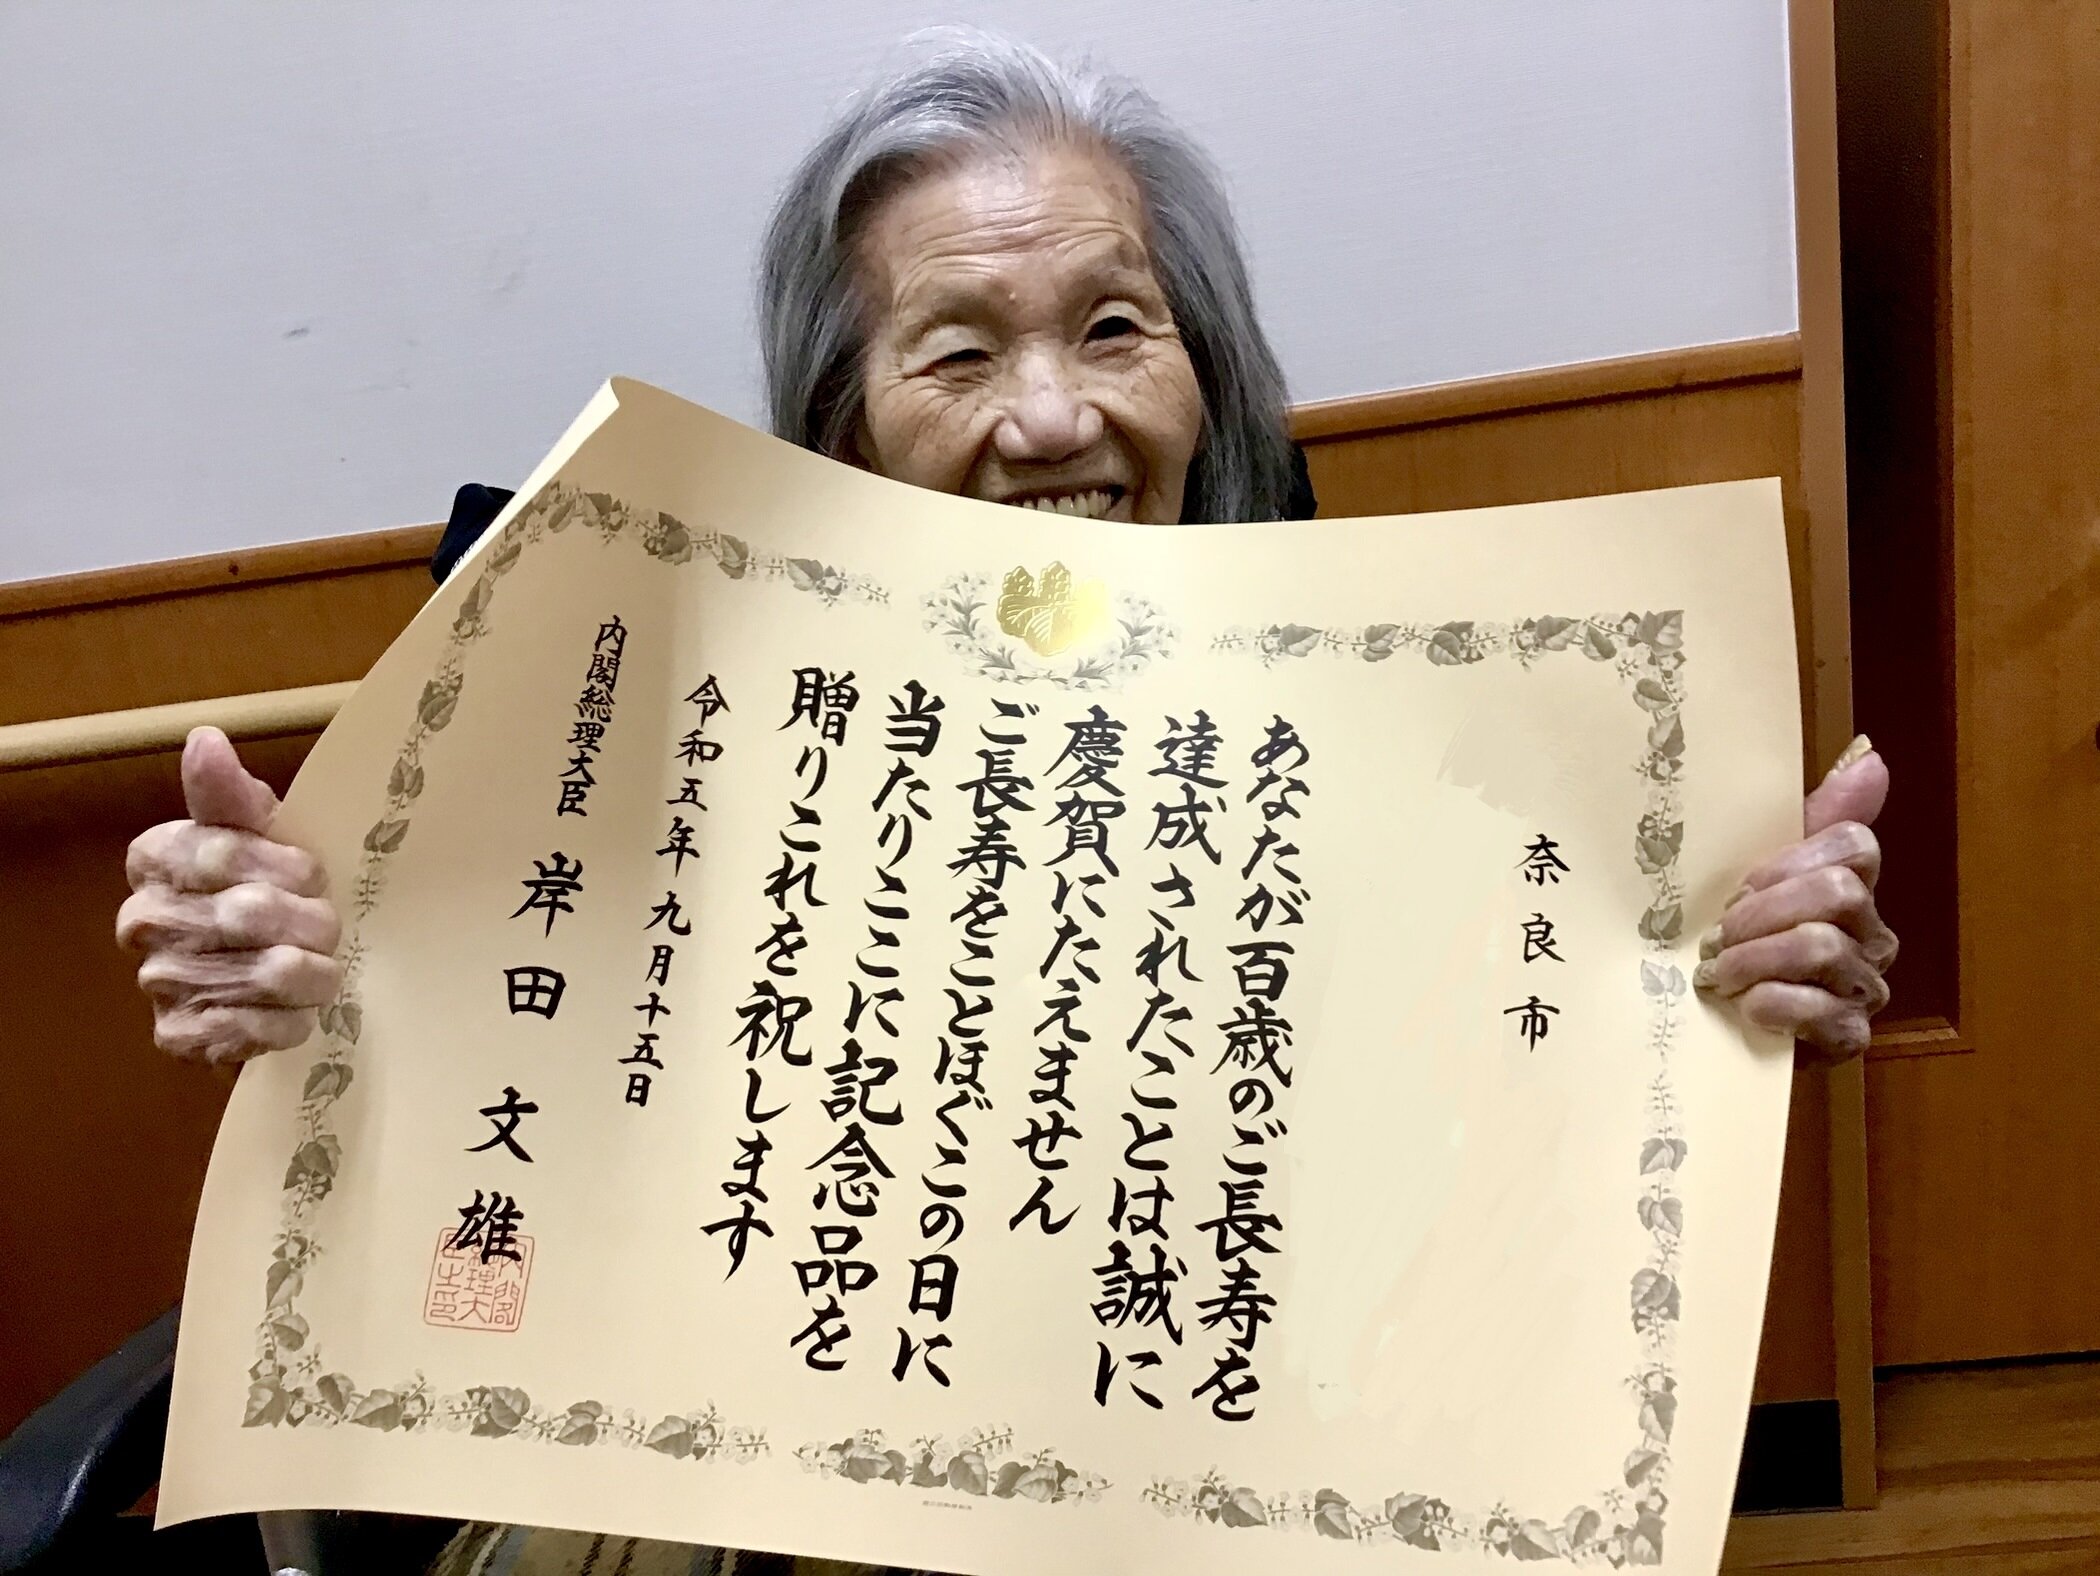 奈良市
あなたが百歳のご長寿を
達成されたことは誠に
慶賀にたえません
ご長寿をことほぐこの日に
当たりここに記念品を
贈りこれを祝します
令和五年九月十五日
内閣総理大臣 岸田文雄
内閣総理大臣之印